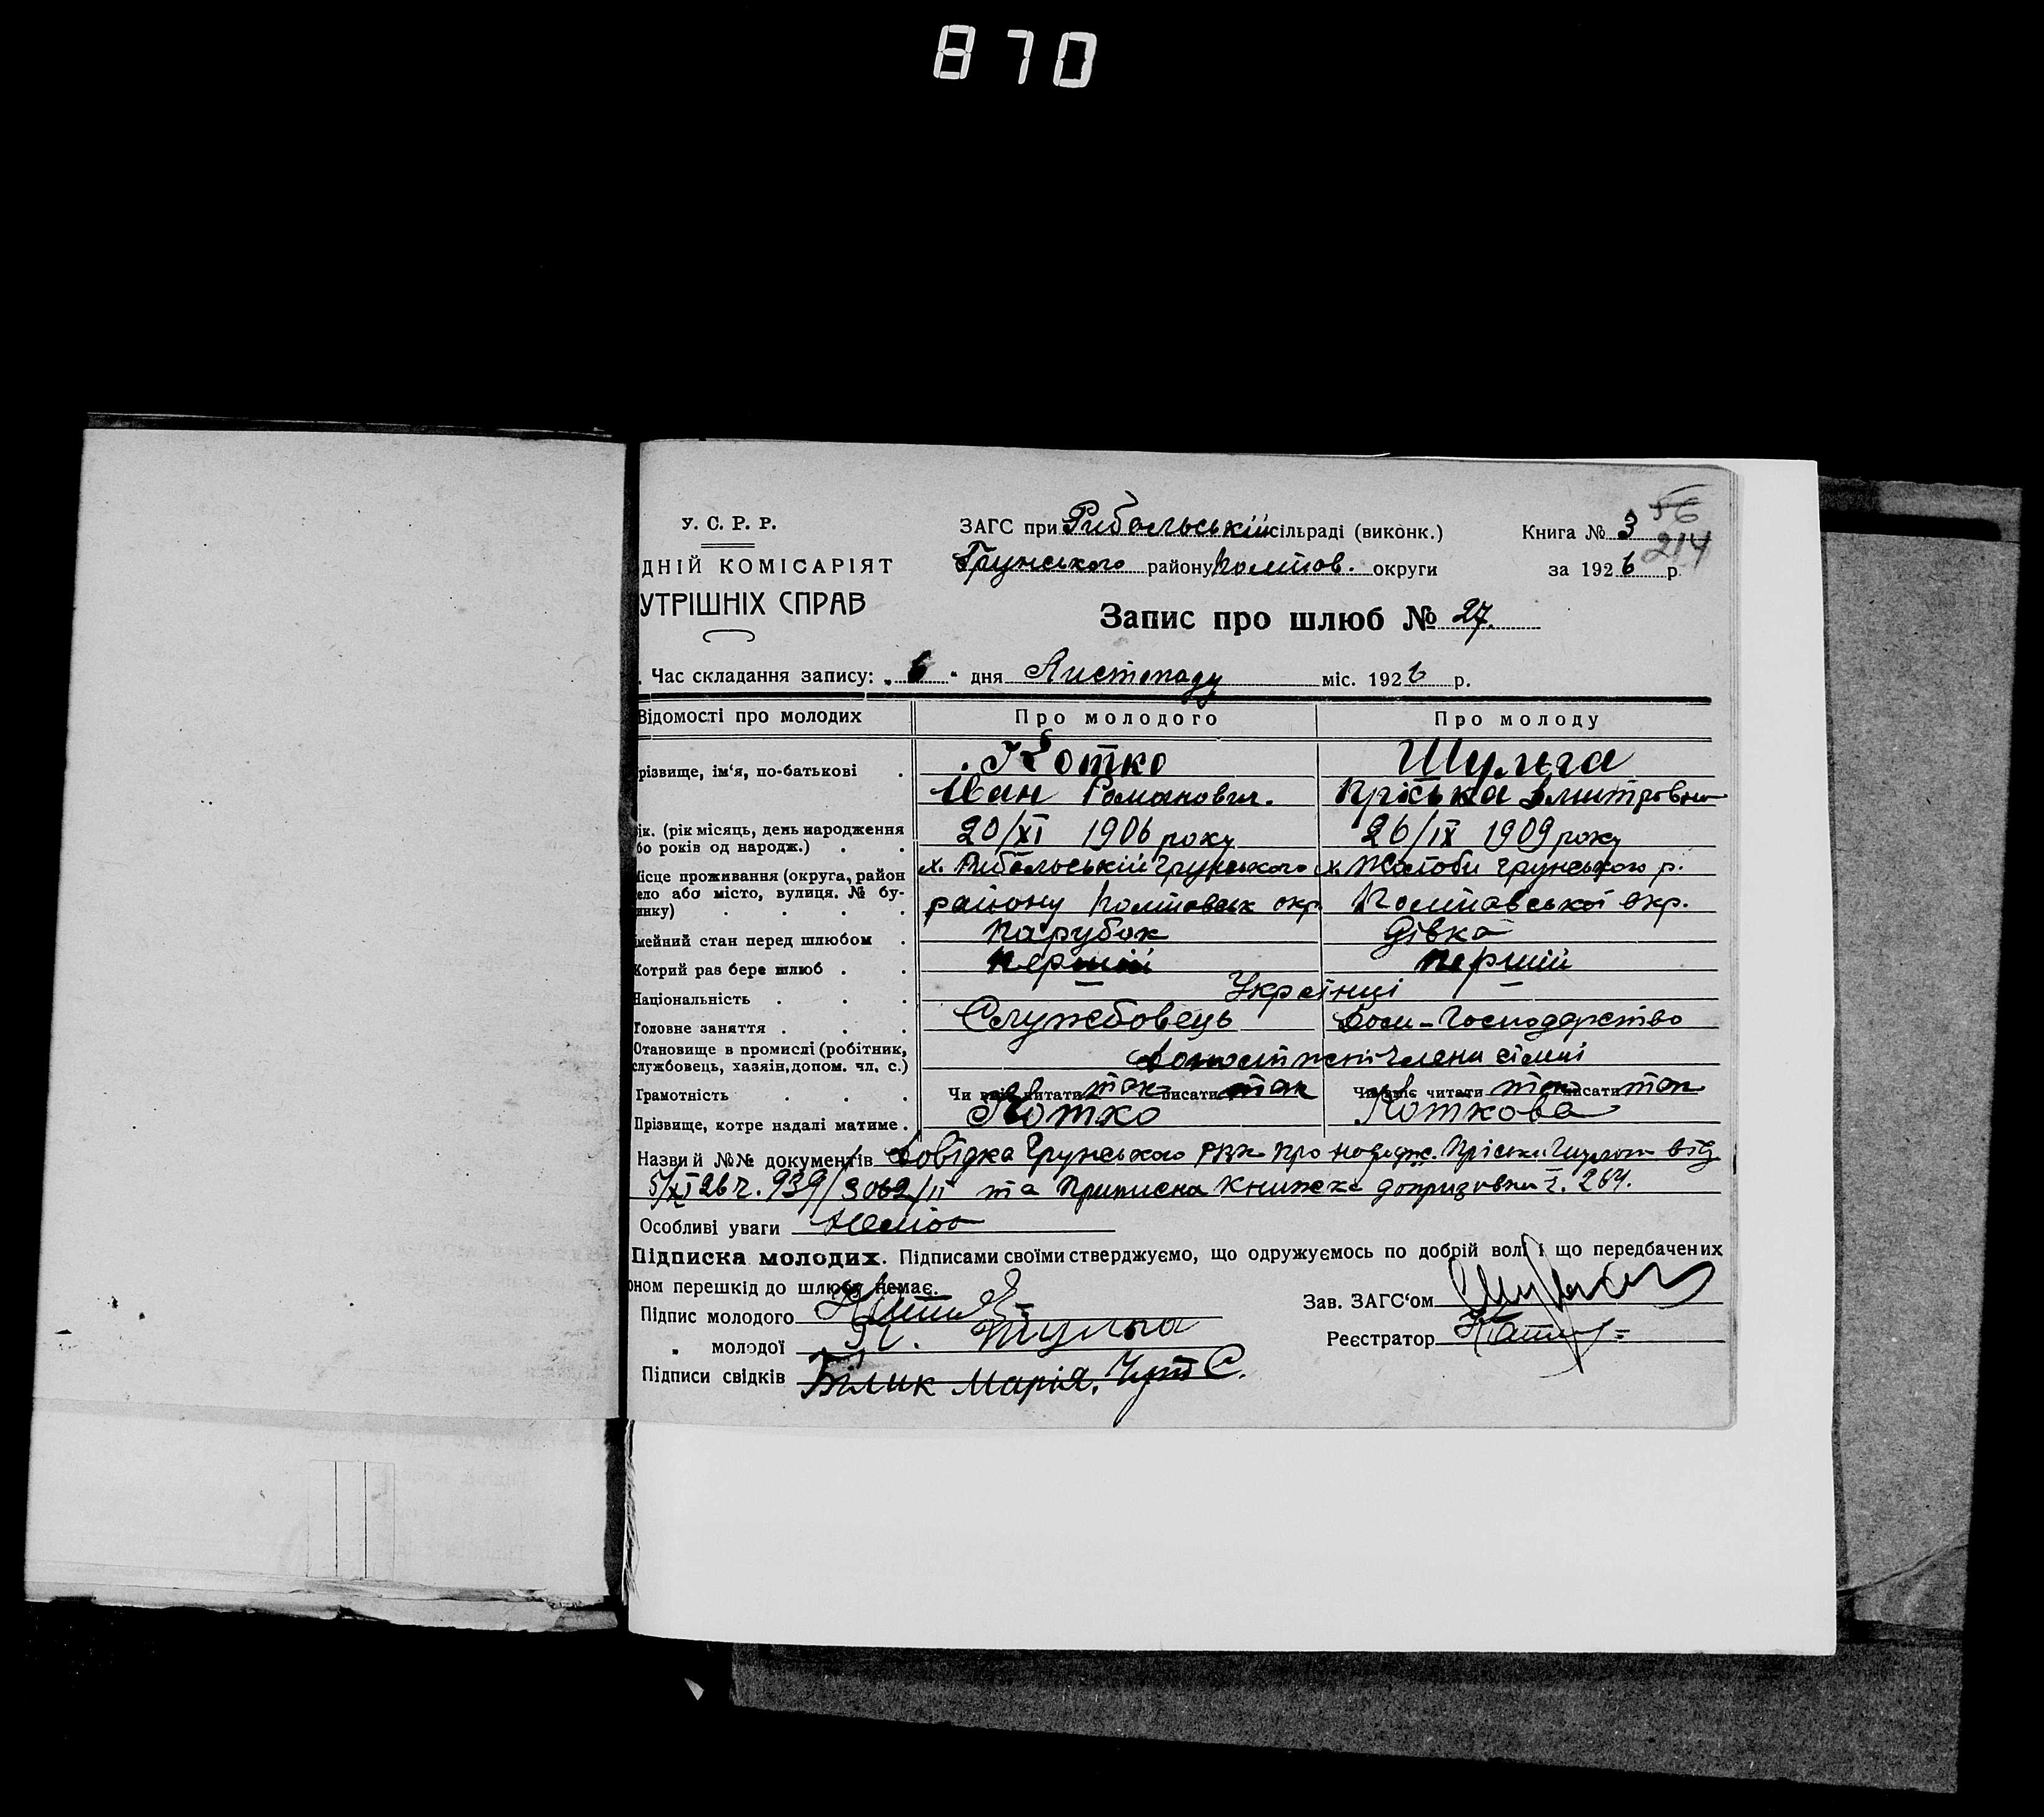 870
У. С. Р. Р.
ДНІЙ КОМІСАРІЯТ
УТРІШНІХ СПРАВ
ЗАГС при Рибальській сільраді (виконк.)
Грунського району Полтав. округи
Книга № 3
56
214
за 1926 р.
Запис про шлюб № 27.
Час складання запису: „6“ дня Листопаду міс. 1926 р.
Відомості про молодих Про молодого Про молоду
різвище, ім‘я, по-батькові . Котко Шульга
Іван Романович. Пріська Дмитровна
ік. (рік місяць, день народження 20/XI 1906 року 26/IX 1909 року
бо років од народж.) . .
ісце проживання (округа, район х. Рибальській Грунського х. Жолоби Грунського р.
ело або місто, вулиця. № бу- району Полтавськ окр. Полтавської окр.
инку) . . . .
мейний стан перед шлюбом . Парубок дівка
Котрий раз бере шлюб . . Перший Перший
Національність . . . Українці
Головне заняття . . . Службовець Дом-Господарство
Становище в промислі (робітник, члени сімьі
службовець, хазяін, допом. чл. с.)
Грамотність . . . Чи вміє читати так писати так Чи вміє читати так писати так
Прізвище, котре надалі матиме . Котко Коткова
Назви й №№ документів Довідка Грунського РВК про народж. Пріськи Шульги від
5/XI 26 г. 939/3062/II та Приписна книжка допризовни 264.
Особливі уваги
Підписка молодих. Підписами своїми стверджуємо, що одружуємось по добрій волі і що передбачених
оном перешкід до шлюбу немає.
Підпис молодого
Зав. ЗАГС‘ом
„ молодої П. Шульга
Реєстратор
Підписи свідків Білик Марія,